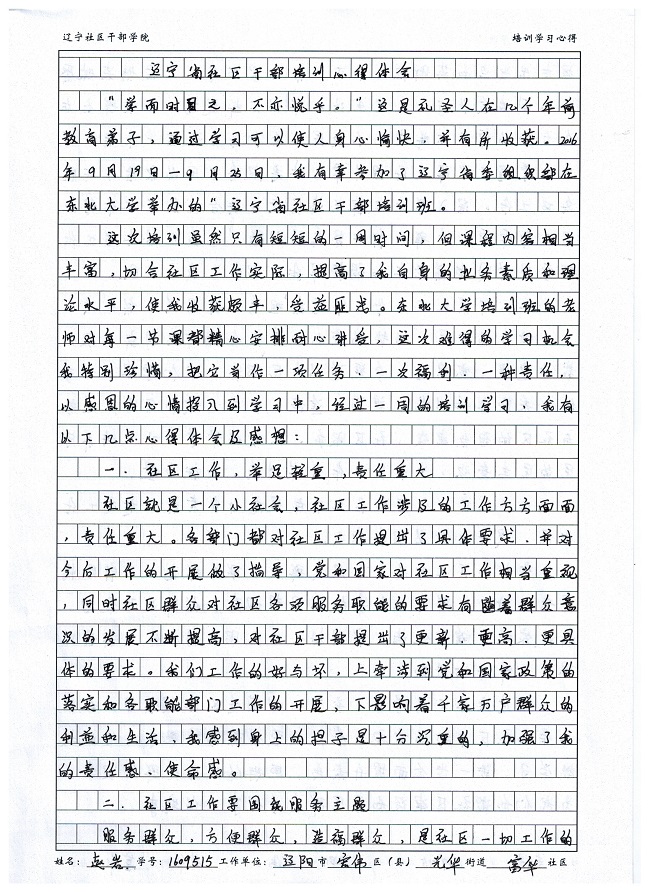 辽宁社区干部学院 培训学习心得
辽宁省社区干部培训心得体会
“学而时习之，不亦悦乎。”这是孔圣人在几个年前
教育弟子，通过学习可以使人身心愉快，并有所收获。2016
年9月19日—9月25日，我有幸参加了辽宁省委组织部在
东北大学举办的“辽宁省社区干部培训班。
这次培训虽然只有短短的一周时间，但课程内容相当
丰富，切合社区工作实际，提高了我自身的业务素质和理
论水平，使我收获颇丰，受益匪浅。东北大学培训班的老
师对每一节课都精心安排耐心讲受，这次难得的学习机会
我特别珍惜，把它当作一项任务．一次福利．一种责任，
以感恩的心情投入到学习中，经过一周的培训学习，我有
以下几点心得体会及感想：
一．社区工作，举足轻重，责任重大
社区就是一个小社会，社区工作涉及的工作方方面面
，责任重大。各部门都对社区工作提出了具体要求．并对
今后工作的开展做了指导，党和国家对社区工作相当重视
，同时社区群众对社区各项服务职能的要求有随着群众意
识的发展不断提高，对社区干部提出了更新．更高．更具
体的要求。我们工作的好与坏，上牵涉到党和国家政策的
落实和各职能部门工作的开展，下影响着千家万户群众的
利益和生活，我感到身上的担子是十分沉重的，加强了我
的责任感、使命感。
二．社区工作要围绕服务主题
服务群众，方便群众，造福群众，是社区一切工作的
姓名： 学号：1609515 工作单位：辽阳市 宏伟区（县） 光华街道 富华社区